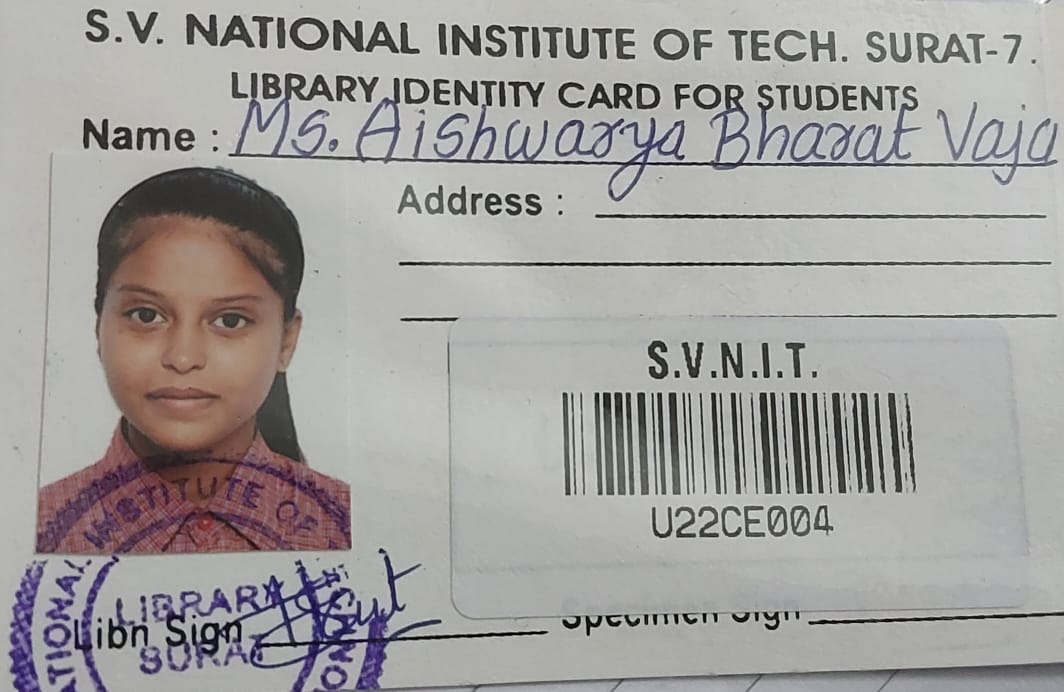 S.V. NATIONAL INSTITUTE OF TECH. SURAT-7.
LIBRARY IDENTITY CARD FOR STUDENTS
Name : Ms. Aishwarya Bharat Vaja
Address :
S.V.N.I.T.
U22CE004
INSTITUTE OF
LIBRARY
Libn Sign
SURAT
Specimen Sign